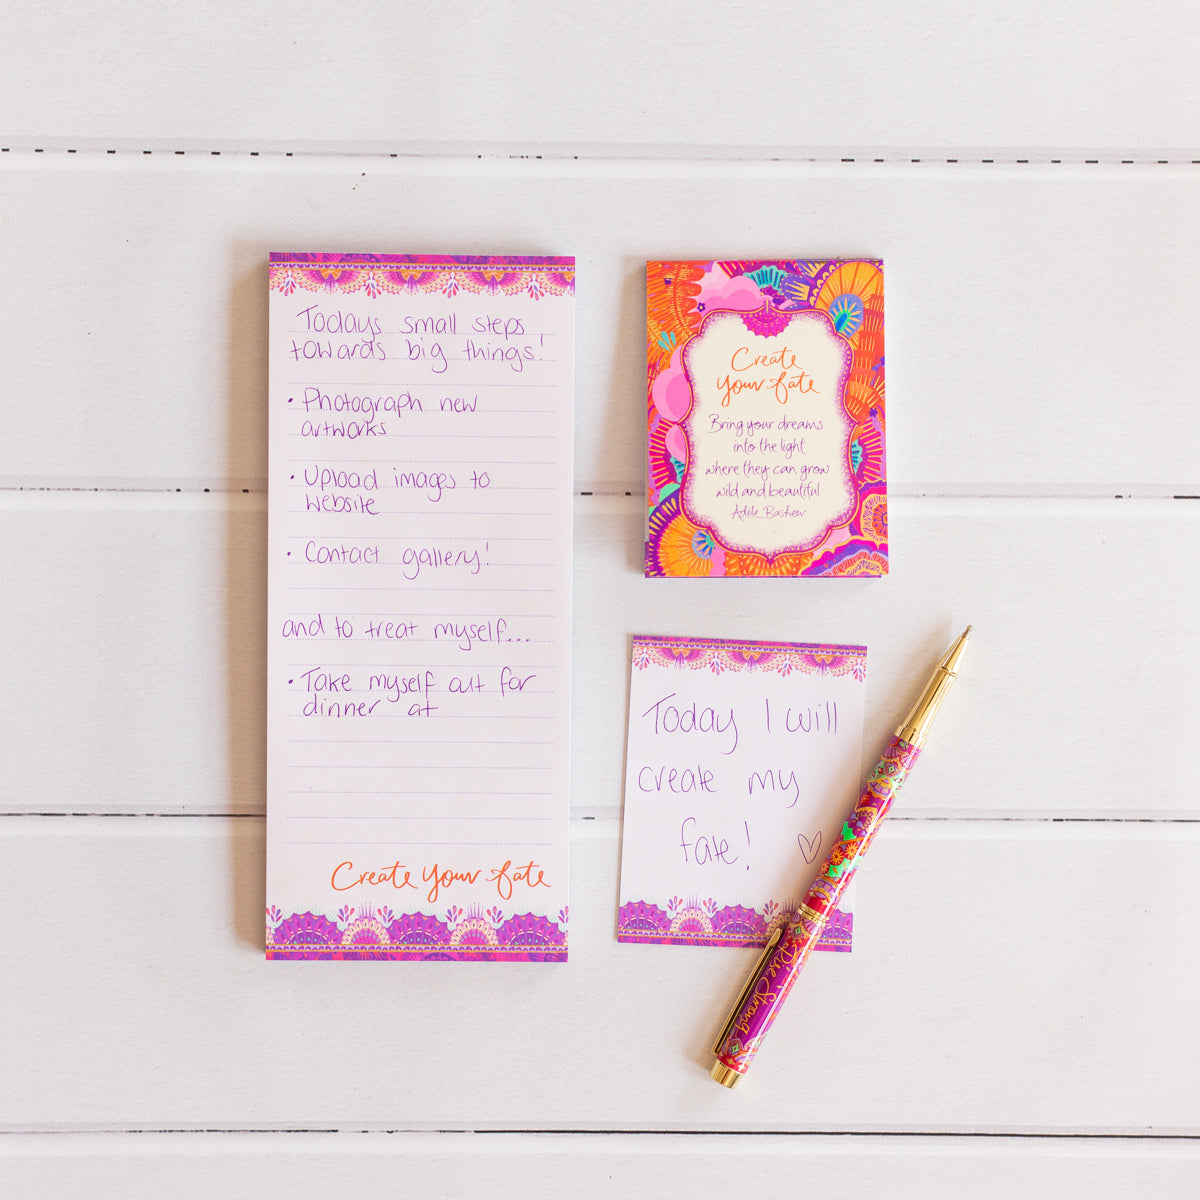 Todays small steps
towards big things!
• Photograph new
artworks
• Upload images to
website
• Contact gallery!
and to treat myself...
• Take myself out for
dinner at
Create Your Fate
Create
Your Fate
Bring your dreams
into the light
where they can grow
wild and beautiful
Adele Basheer
Today I will
create my
fate!
Rise Strong